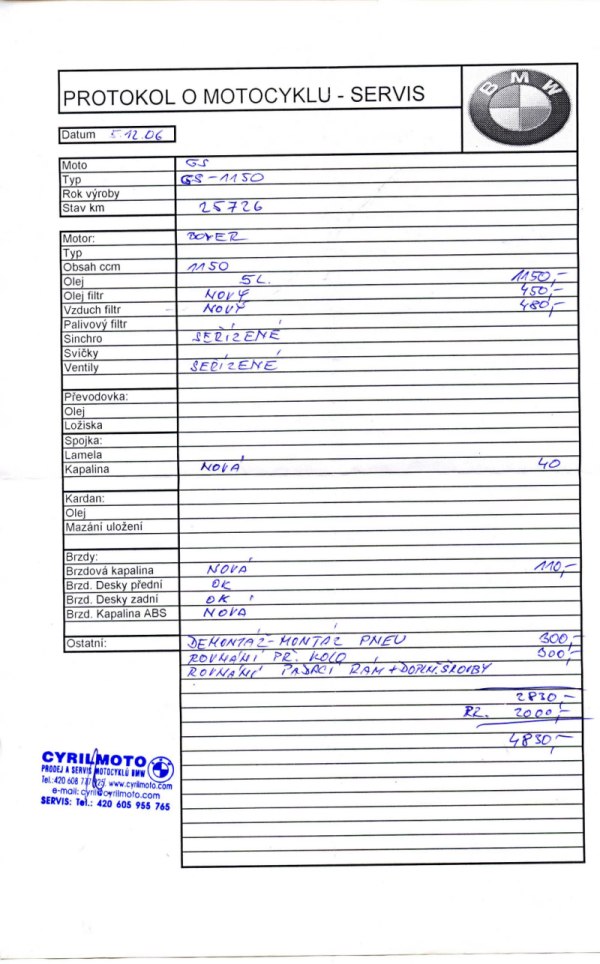 PROTOKOL O MOTOCYKLU - SERVIS
BMW
Datum 5.12.06
Moto GS
Typ GS-1150
Rok výroby
Stav km 25726
Motor: BOXER
Typ
Obsah ccm 1150
Olej 5L. 1150,-
Olej filtr NOVÝ 450,-
Vzduch filtr NOVÝ 480,-
Palivový filtr
Sinchro SEŘÍZENÉ
Svíčky
Ventily SEŘÍZENÉ
Převodovka:
Olej
Ložiska
Spojka:
Lamela
Kapalina NOVÁ 40
Kardan:
Olej
Mazání uložení
Brzdy:
Brzdová kapalina NOVÁ 110,-
Brzd. Desky přední OK
Brzd. Desky zadní OK
Brzd. Kapalina ABS NOVÁ
Ostatní: DEMONTÁŽ-MONTÁŽ PNEU 300,-
ROVNÁNÍ PŘ. KOLO 300,-
ROVNÁNÍ PADACÍ RÁM + DOPLN. ŠROUBY
2830,-
2000,-
4830,-
CYRILMOTO
PRODEJ A SERVIS MOTOCYKLŮ BMW
www.cyrilmoto.com
e-mail: cyril@cyrilmoto.com
SERVIS: Tel.: 420 605 955 765